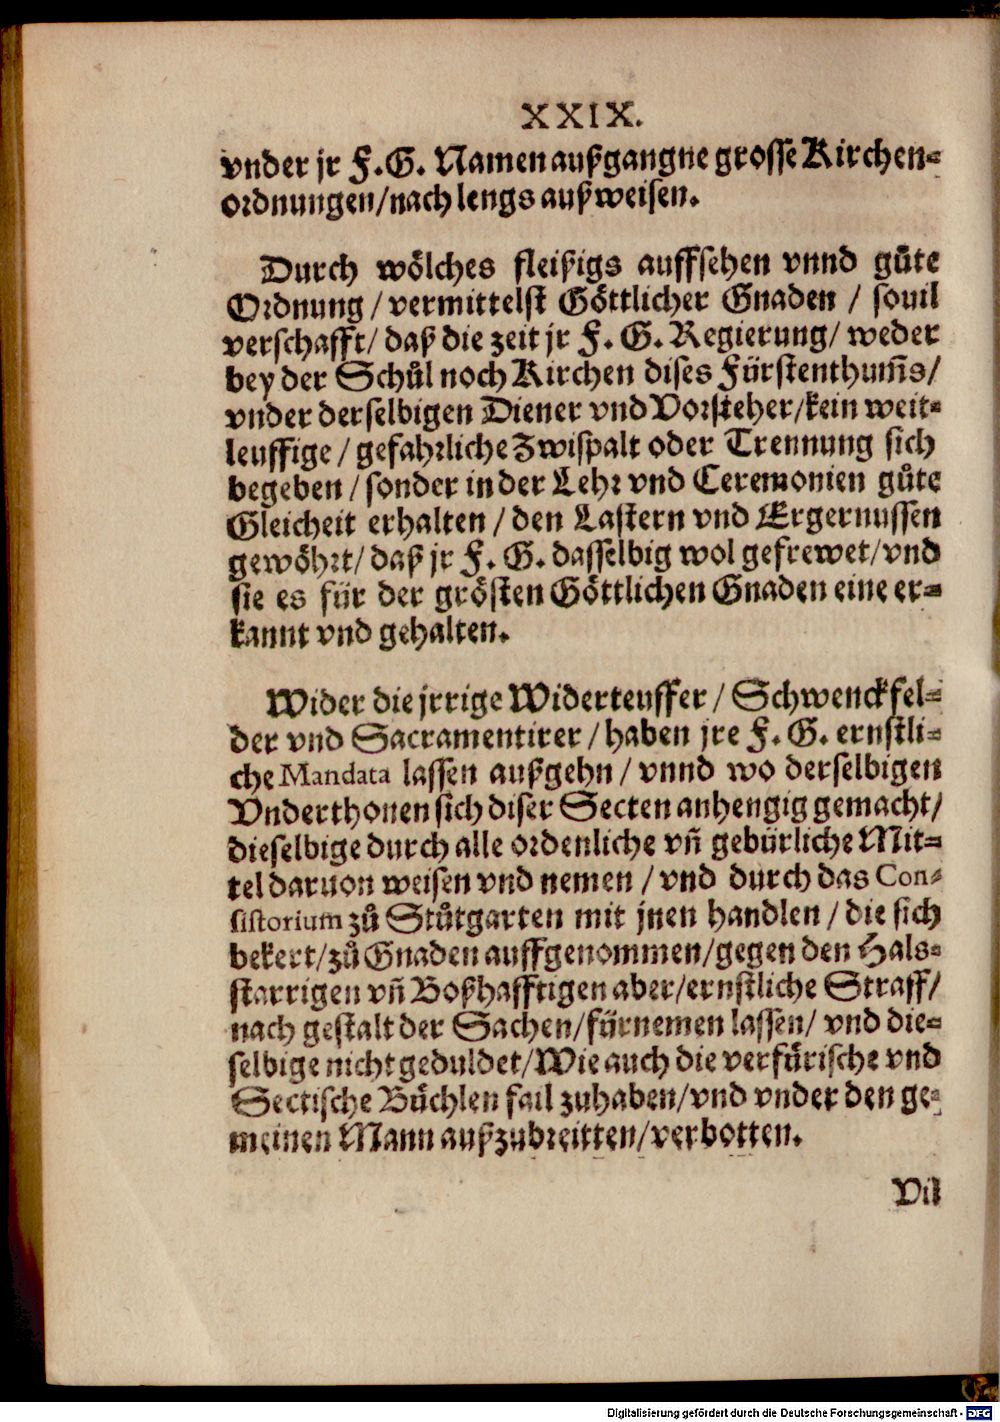 XXIX.
vnder jr F.G. Namen außgangne grosse Kirchen-
ordnungen/nach lengs außweisen.
Durch wölches fleißigs auffsehen vnnd gůte
Ordnung/vermittelst Göttlicher Gnaden / souil
verschafft/daß die zeit jr F. G. Regierung/weder
bey der Schůl noch Kirchen dises Fürstenthum̃s/
vnder derselbigen Diener vnd Vorsteher/kein weit-
leuffige/gefahrliche Zwispalt oder Trennung sich
begeben/sonder in der Lehr vnd Ceremonien gůte
Gleicheit erhalten/den Lastern vnd Ergernussen
gewöhrt/daß jr F. G. dasselbig wol gefrewet/vnd
sie es für der grösten Göttlichen Gnaden eine er-
kannt vnd gehalten.
Wider die jrrige Widerteuffer/Schwenckfel-
der vnd Sacramentirer/haben jre F. G. ernstli-
che Mandata lassen außgehn/vnnd wo derselbigen
Vnderthonen sich diser Secten anhengig gemacht/
dieselbige durch alle ordenliche vñ gebürliche Mit-
tel daruon weisen vnd nemen/vnd durch das Con-
sistorium zů Stůtgarten mit jnen handlen/die sich
bekert/zů Gnaden auffgenommen/gegen den Hals-
starrigen vñ Boßhafftigen aber/ernstliche Straff/
nach gestalt der Sachen/fürnemen lassen/vnd die-
selbige nicht geduldet/Wie auch die verfürische vnd
Sectische Büchlen fail zuhaben/vnd vnder den ge-
meinen Mann außzubreitten/verbotten.
Vil
Digitalisierung gefördert durch die Deutsche Forschungsgemeinschaft - DFG